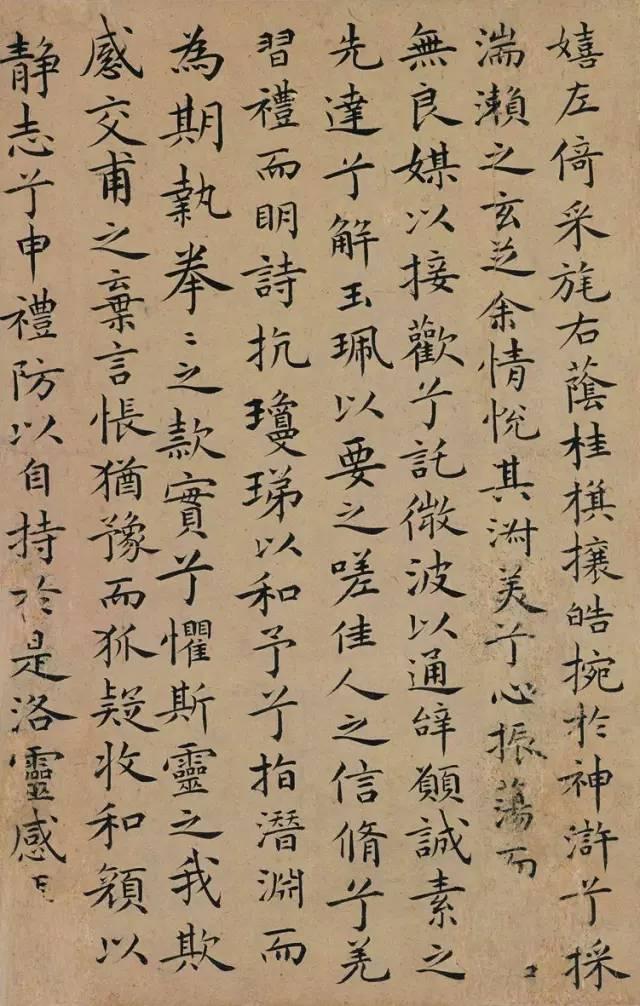 嬉左倚采旄右蔭桂棋攘皓捥於神滸兮採
湍瀨之玄芝余情悅其淑美兮心振蕩而
無良媒以接歡兮託微波以通辭願誠素之
先達兮解玉珮以要之嗟佳人之信脩兮羌
習禮而明詩抗瓊珶以和予兮指潛淵而
為期執拳〻之款實兮懼斯靈之我欺
感交甫之棄言悵猶豫而狐疑收和顏以
靜志兮申禮防以自持於是洛靈感